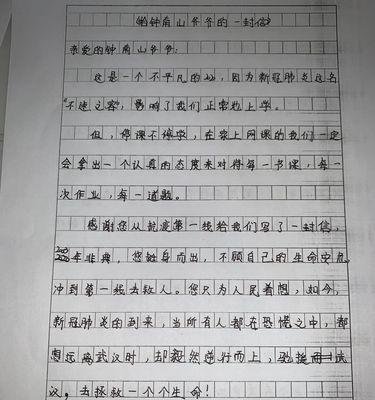 《给钟南山爷爷的一封信》
亲爱的钟南山爷爷：
这是一个不平凡的，因为新冠肺炎这名
“不速之客，影响了我们正常地上学。
但，停课不停学，在家上网课的我们一定
会拿出一个认真的态度来对待每一节课，每一
次作业，每一道题。
感谢您从抗疫第一线给我们写了一封信，
2003年非典，您挺身而出，不顾自己的生命安危，
冲到第一线去救人。您只为人民着想，如今，
新冠肺炎的到来，当所有人都在恐慌之中，都
想远离武汉时，却毅然逆行而上，武
汉，去拯救一个个生命！